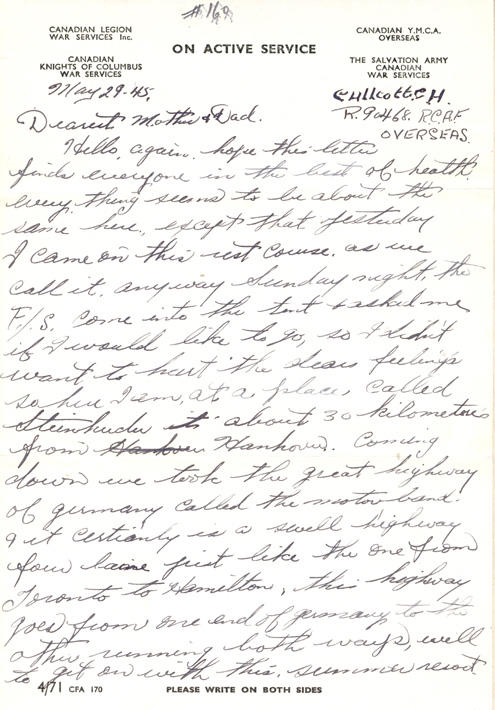 #169
CANADIAN LEGION
WAR SERVICES Inc.
CANADIAN
KNIGHTS OF COLUMBUS
WAR SERVICES
ON ACTIVE SERVICE
CANADIAN Y.M.C.A.
OVERSEAS
THE SALVATION ARMY
CANADIAN
WAR SERVICES
May 29-45.
Cullcott C.H.
R.90468. R.C.A.F
OVERSEAS.
Dearest Mother & Dad.
Hello, again, hope this letter
finds everyone in the best of health.
every thing seems to be about the
same here, except that yesterday
I came on this rest course, as we
call it, anyway Sunday night the
F/S. come into the tent & asked me
if I would like to go, so I didn't
want to hurt the dears feelings
so here I am, at a place, called
Steinhuder it about 30 kilometers
from Hanhover Hanhover. Coming
down we took the great highway
of germany called the motor band.
& it certianly is a swell highway
four laine just like the one from
Toronto to Hamilton, this highway
goes from one end of germany to the
other, running both ways, well
to get on with this summer resort
4/71 CFA 170
PLEASE WRITE ON BOTH SIDES